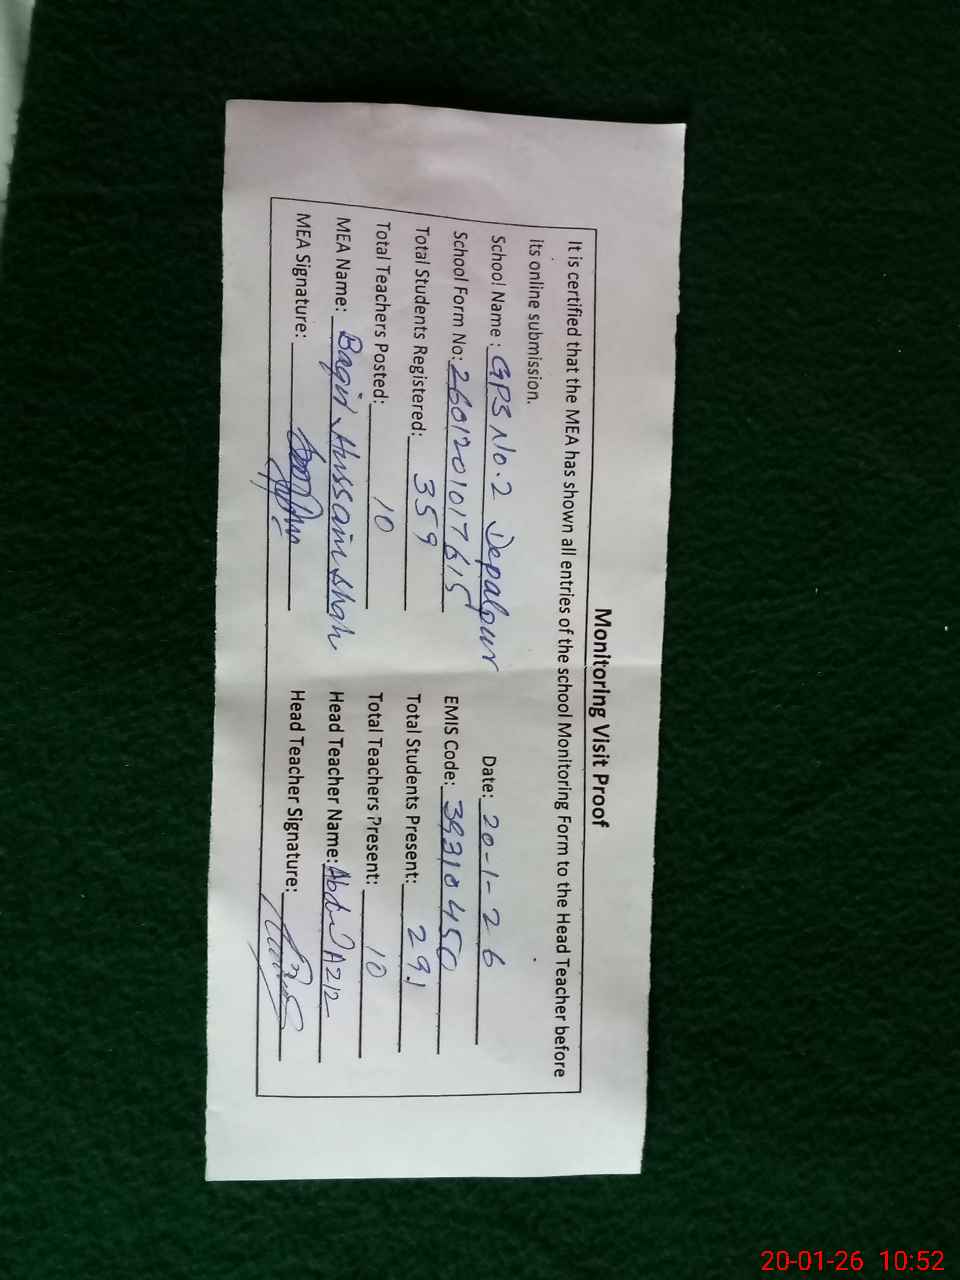 Monitoring Visit Proof
It is certified that the MEA has shown all entries of the school Monitoring Form to the Head Teacher before
its online submission.
School Name : GPS No. 2 Depalpur Date: 20-1-26
School Form No: 2601201017615 EMIS Code: 39310450
Total Students Registered: 359 Total Students Present: 291
Total Teachers Posted: 10 Total Teachers Present: 10
MEA Name: Baqir Hussain Shah Head Teacher Name: Abdul Aziz
MEA Signature: Head Teacher Signature:
20-01-26 10:52